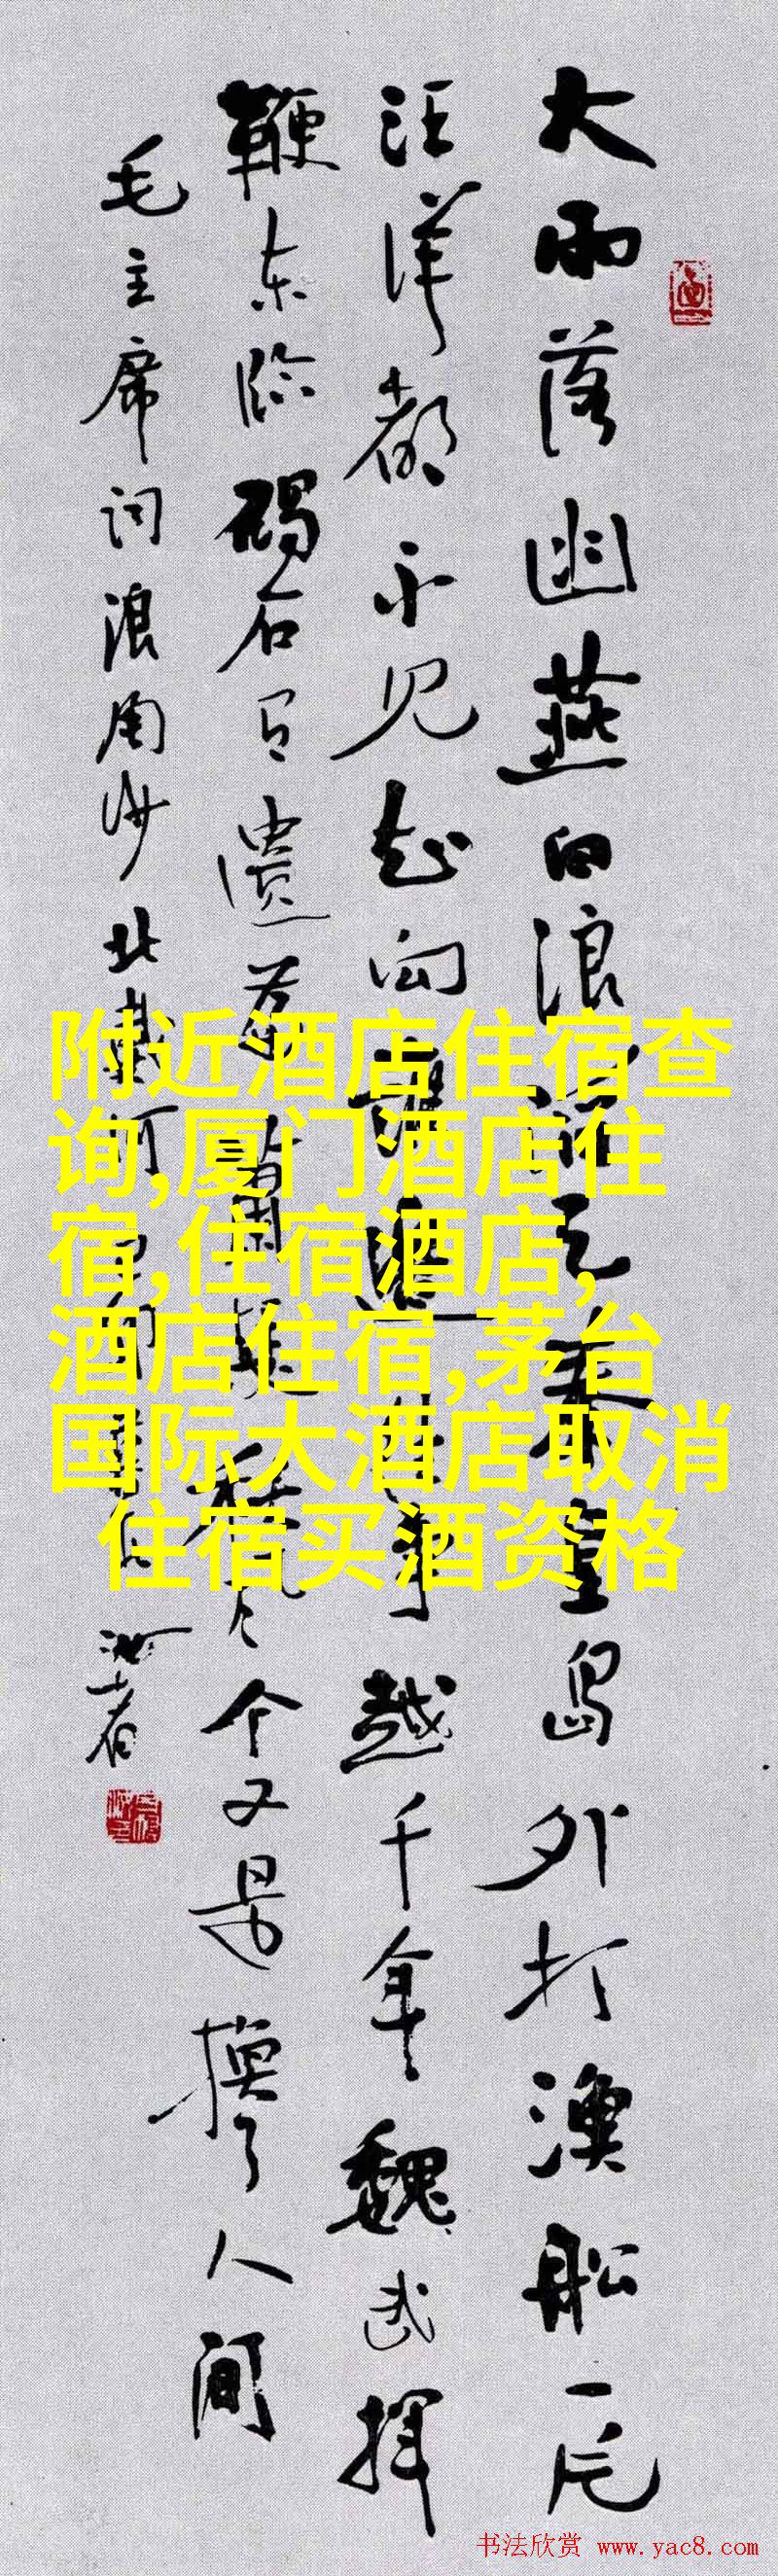 大雨落幽燕白浪滔天秦皇岛外打漁船一片
汪洋都不见知向谁边往事越千年魏武挥
鞭东临碣石有遗篇萧瑟秋风今又是換了人间
毛主席词浪淘沙北戴河
附近酒店住宿查
询,厦门酒店住
宿,住宿酒店,
酒店住宿,茅台
国际大酒店取消
住宿买酒资格
书法欣赏 www.yac8.com